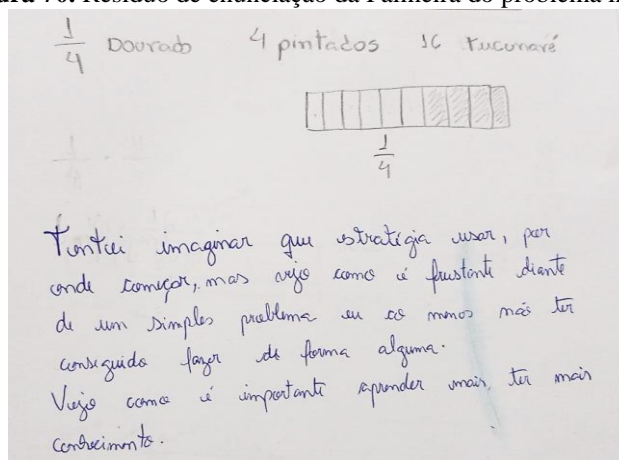 Resíduo de enunciação da Palmeira do problema
1/4 Dourado 4 pintados 16 tucunaré
1/4
Tentei imaginar que estratégia usar, por
onde começar, mas vejo como é frustante diante
de um simples problema eu ao menos não ter
conseguido fazer de forma alguma.
Vejo como é importante aprender mais, ter mais
conhecimento.